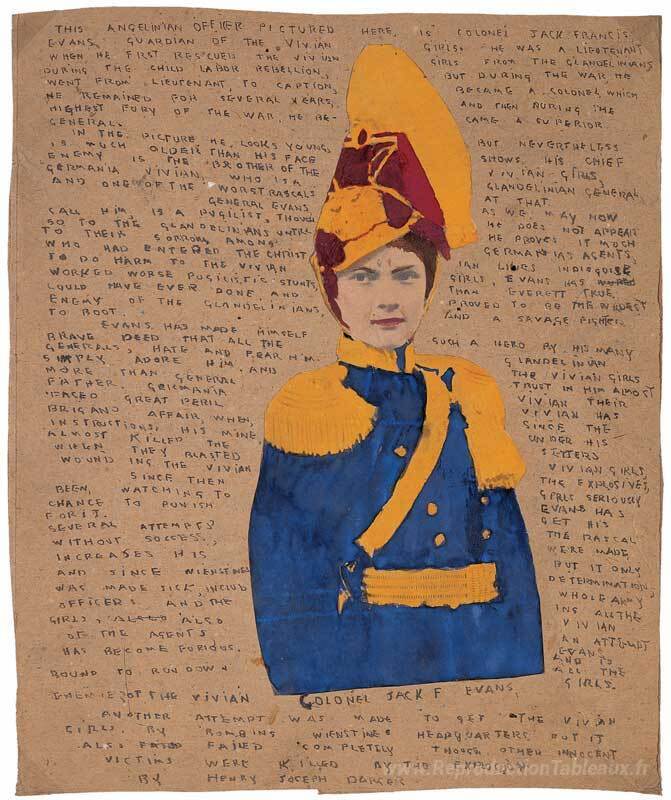 THIS ANGELINIAN OFFICER PICTURED HERE, IS COLONEL JACK FRANCIS
EVANS, GUARDIAN OF THE VIVIAN GIRLS. HE WAS A LIEUTENANT
WHEN HE FIRST RESCUED THE VIVIAN GIRLS FROM THE GLANDELINIANS
DURING THE CHILD LABOR REBELLION, BUT DURING THE WAR HE
WENT FROM LIEUTENANT, TO CAPTION, BECAME A COLONEL WHICH
HE REMAINED FOR SEVERAL YEARS, AND THEN DURING THE
HIGHEST FURY OF THE WAR, HE BE- CAME A SUPERIOR
GENERAL.
IN THE PICTURE HE LOOKS YOUNG, BUT NEVERTHELESS
IS MUCH OLDER THAN HIS FACE SHOWS. HIS CHIEF
ENEMY IS THE BROTHER OF THE VIVIAN GIRLS,
GERMANIA VIVIAN, WHO IS A GLANDELINIAN GENERAL
AND ONE OF THE WORST RASCALS AT THAT.
GENERAL EVANS AS WE MAY NOW
CALL HIM, IS A PUGILIST, THOUGH HE DOES NOT APPEAR
SO TO THE GLANDELINIANS UNTIL HE PROVES IT MUCH
TO THEIR SORROW, AMONG GERMANIAS AGENTS,
WHO HAD ENTERED THE CHRIST IAN LINES INDISGUISE
TO DO HARM TO THE VIVIAN GIRLS, EVANS HAS
WORKED WORSE PUGILISTIC STUNTS THAN EVERETT TRUE,
COULD HAVE EVER DONE AND PROVED TO BE THE WORDEST
ENEMY OF THE GLANDELINIANS, AND A SAVAGE FIGHTER
TO BOOT.
EVANS HAS MADE HIMSELF SUCH A HERO BY HIS MANY
BRAVE DEED THAT ALL THE GLANDELINIAN
GENERALS, HATE AND FEAR HIM. THE VIVIAN GIRLS
SIMPLY ADORE HIM, AND TRUST IN HIM ALMOST
MORE THAN GENERAL VIVIAN THEIR
FATHER. GERMANIA VIVIAN HAS
FACED GREAT PERIL SINCE THE
BRIGAND AFFAIR, WHEN, UNDER HIS
INSTRUCTIONS, HIS MINE SETTERS
ALMOST KILLED THE VIVIAN GIRLS
WHEN THEY BLASTED THE EXPLOSIVES,
WOUNDING THE VIVIAN GIRLS SERIOUSLY
SINCE THEN EVANS HAS
BEEN, WATCHING TO GET HIS
CHANCE TO PUNISH THE RASCAL
FOR IT.
SEVERAL ATTEMPTS WERE MADE
WITHOUT SUCCESS, BUT IT ONLY
INCREASES HIS DETERMINATION,
AND SINCE WIENSTINES WHOLE ARMY
WAS MADE SICK, INCLUD ING ALL THE
OFFICERS AND THE VIVIAN
GIRLS, ALSO ALSO AN ATTEMPT
OF THE AGENTS EVANS
HAS BECOME FURIOUS. AND IS
BOUND TO RUN DOWN ALL THE
ENEMIES OF THE VIVIAN GIRLS.
COLONEL JACK F EVANS
ANOTHER ATTEMPT WAS MADE TO GET THE VIVIAN
GIRLS BY BOMBING WIENSTINES HEADQUARTERS BUT IT
ALSO FAILED COMPLETELY THOUGH OTHER INNOCENT
VICTIMS WERE KILLED BY THE EXPLOSION
BY HENRY JOSEPH DARGER
www.ReproductionTableaux.fr